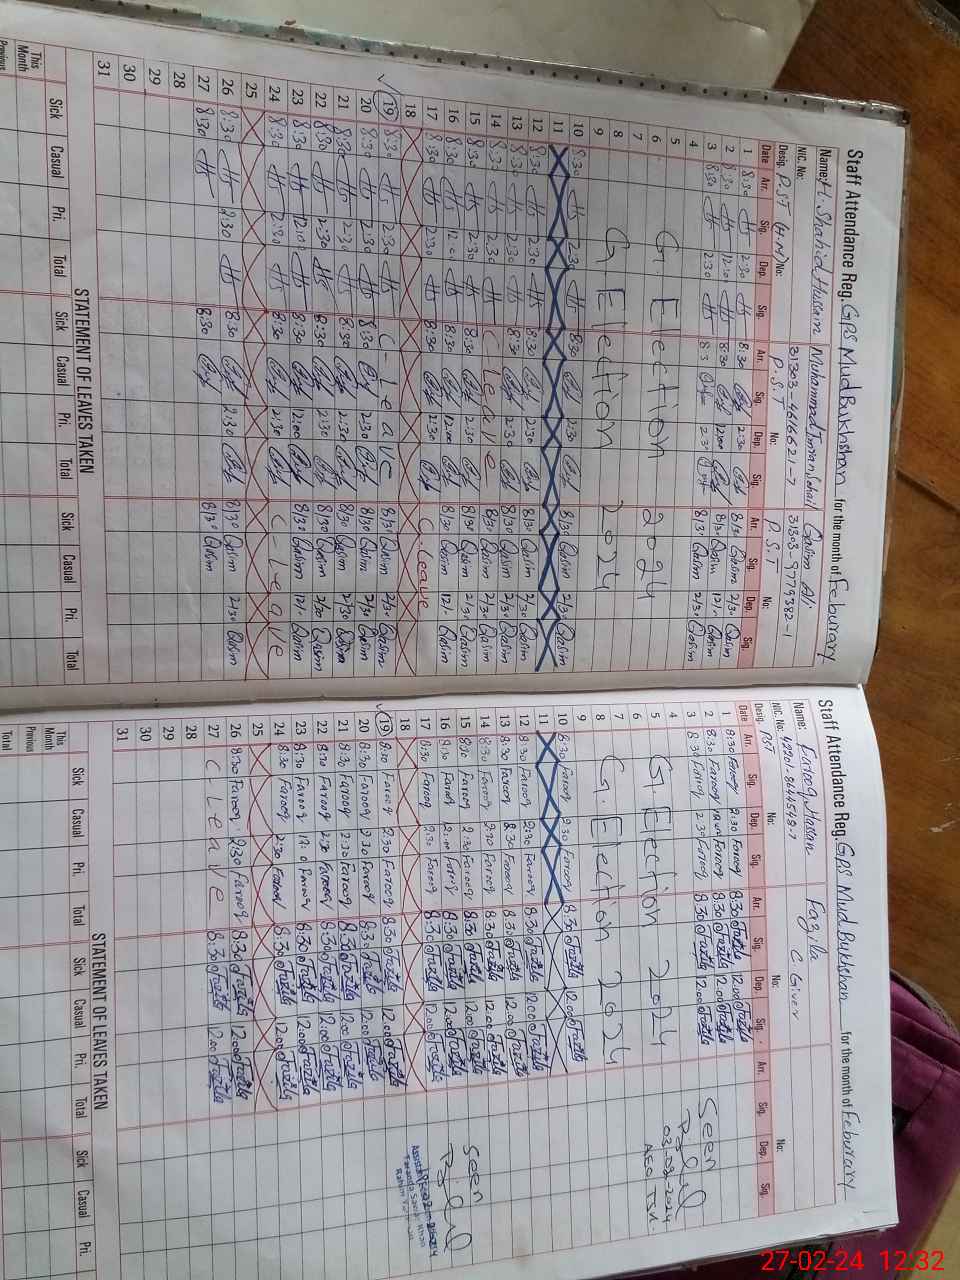 Staff Attendance Reg. GPS Mud Bukhshan for the month of Feburary
Name: H. Shahid Hussain Muhammad Imran Sohail Qasim Ali
NIC. No: 31303-4616621-7 31303-9779382-1
Desig. P.S.T (H.M) No: P.S.T No: P.S.T No:
Date Arr. Sig. Dep. Sig. Arr. Sig. Dep. Sig. Arr. Sig. Dep. Sig.
1 8:30 2:30 8:30 2:30 8/30 Qasim 2/30 Qasim
2 8:30 12:00 8:30 12:00 8/30 Qasim 12/- Qasim
3 8:30 2:30 8:3 2:3 8/30 Qasim 2/30 Qasim
4
5
6 G. Election 2024
7
8 G. Election 2024
9
10 8:30 2:30 8:30 2:30 8/30 Qasim 2/30 Qasim
11
12 8:30 2:30 8:30 2:30 8/30 Qasim 2/30 Qasim
13 8:30 2:30 8:30 2:30 8/30 Qasim 2/30 Qasim
14 8:30 2:30 C Leave 8/30 Qasim 2/30 Qasim
15 8:30 2:30 8:30 2:30 8/30 Qasim 2/30 Qasim
16 8:30 12:00 8:30 12:00 8/30 Qasim 12/- Qasim
17 8:30 2:30 8:30 2:30 C Leave
18
19 8:30 2:30 C-Leave 8/30 Qasim 2/30 Qasim
20 8:30 2:30 8:30 2:30 8/30 Qasim 2/30 Qasim
21 8:30 2:30 8:30 2:30 8/30 Qasim 2/30 Qasim
22 8:30 2:30 8:30 2:30 8/30 Qasim 2/30 Qasim
23 8:30 12:0 8:30 12:00 8/30 Qasim 12/- Qasim
24 8:30 2:30 8:30 2:30 C-Leave
25
26 8:30 2:30 8:30 2:30 8/30 Qasim 2/30 Qasim
27 8:30 8:30 8/30 Qasim
28
29
30
31
STATEMENT OF LEAVES TAKEN
Sick Casual Pri. Total Sick Casual Pri. Total Sick Casual Pri. Total
This Month
Previous
Staff Attendance Reg. GPS Mud Bukhshan for the month of Feburary
Name: Farooq Hassan Fazila
NIC. No: C. Giver
Desig. No: No: No:
Date Arr. Sig. Dep. Sig. Arr. Sig. Dep. Sig. Arr. Sig. Dep. Sig.
1 8:30 Farooq 2:30 Farooq 8:30 Fazila 12:00 Fazila
2 8:30 Farooq 12:00 Farooq 8:30 Fazila 12:00 Fazila
3 8:30 Farooq 2:30 Farooq 8:30 Fazila 12:00 Fazila
Seen
4
03.02.2024
5 G. Election 2024
AEO
6
7
8 G. Election 2024
9
10 8:30 Farooq 2:30 Farooq 8:30 Fazila 12:00 Fazila
11
12 8:30 Farooq 2:30 Farooq 8:30 Fazila 12:00 Fazila
13 8:30 Farooq 2:30 Farooq 8:30 Fazila 12:00 Fazila
14 8:30 Farooq 2:30 Farooq 8:30 Fazila 12:00 Fazila
15 8:30 Farooq 2:30 Farooq 8:30 Fazila 12:00 Fazila
Seen
16 8:30 Farooq 12:00 Farooq 8:30 Fazila 12:00 Fazila
17 8:30 Farooq 2:30 Farooq 8:30 Fazila 12:00 Fazila
18
19 8:30 Farooq 2:30 Farooq 8:30 Fazila 12:00 Fazila
20 8:30 Farooq 2:30 Farooq 8:30 Fazila 12:00 Fazila
21 8:30 Farooq 2:30 Farooq 8:30 Fazila 12:00 Fazila
22 8:30 Farooq 2:30 Farooq 8:30 Fazila 12:00 Fazila
23 8:30 Farooq 12:0 Farooq 8:30 Fazila 12:00 Fazila
24 8:30 Farooq 2:30 Farooq 8:30 Fazila 12:00 Fazila
25
26 8:30 Farooq 2:30 Farooq 8:30 Fazila 12:00 Fazila
27 C Leave 8:30 Fazila 12:00 Fazila
28
29
30
31
STATEMENT OF LEAVES TAKEN
Sick Casual Pri. Total Sick Casual Pri. Total Sick Casual Pri.
This Month
Previous
Total
27-02-24 12:32